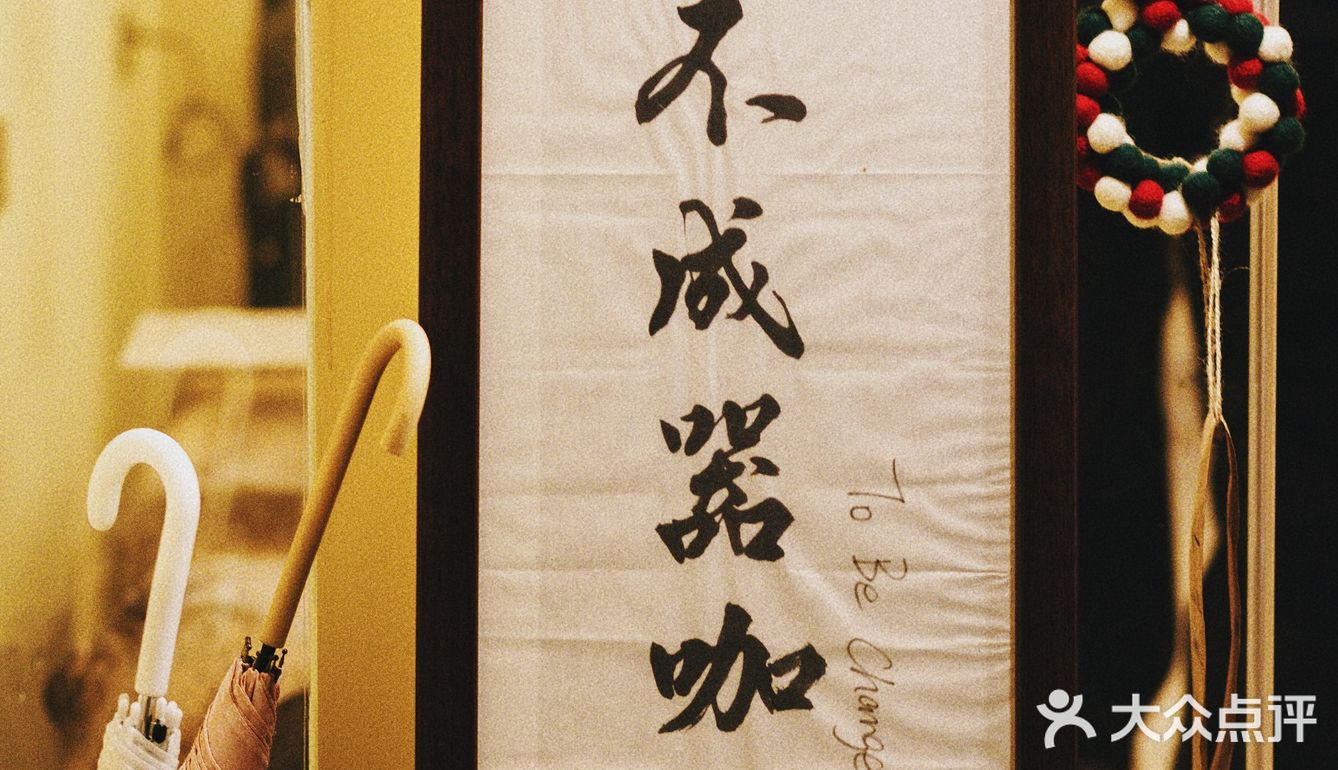 不成器咖
To Be Change
大众点评